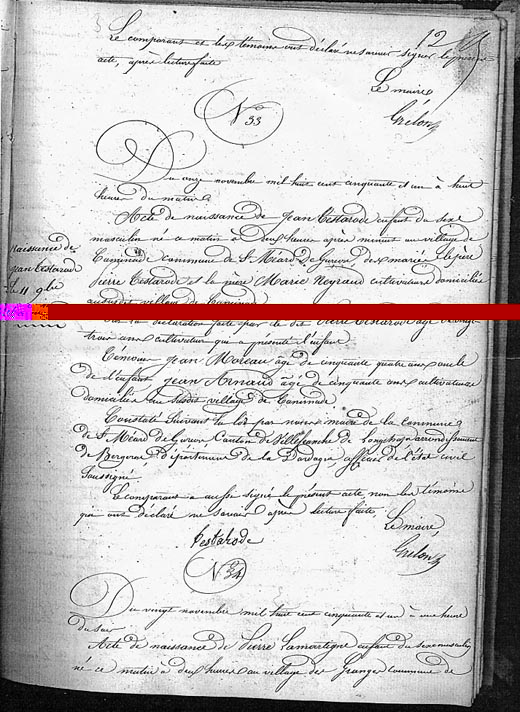 12
Le comparant et les témoins ont déclaré ne savoir signer le présent
acte, après lecture faite
Le maire
Grelon
No 33
Du onze novembre mil huit cent cinquante et un à huit
heures du matin
Acte de naissance de Jean Testarode enfant du sexe
masculin né ce matin à deux heures après minuit au village de
commune de St Méard de Gurson, des mariés le père
Pierre Testarode et la mère Marie Neyraud cultivateurs domiciliés
Naissance de
Jean Testarode
le 11 9bre
au susdit village de
Sur la déclaration faite par le dit Pierre Testarode âgé de vingt
trois ans cultivateur qui a présenté l'enfant
Témoins Jean Moreau âgé de cinquante quatre ans oncle
de l'enfant Jean Arnaud âgé de cinquante ans cultivateurs
domiciliés au susdit village de
Constaté Suivant la loi par nous maire de la commune
de St Méard de Gurson, Canton de Villefranche de Longchapt arrondissement
de Bergerac, département de la Dordogne, officier de l'état civil
Soussigné
Le comparant a aussi signé le présent acte, non les témoins
qui ont déclaré ne savoir après lecture faite,
Le maire
Testarode
Grelon
No 34
Du vingt novembre mil huit cent cinquante et un à une heure
du soir
Acte de naissance de Pierre Lamartigne enfant du sexe masculin
né ce matin à deux heures au village des Granges commune de